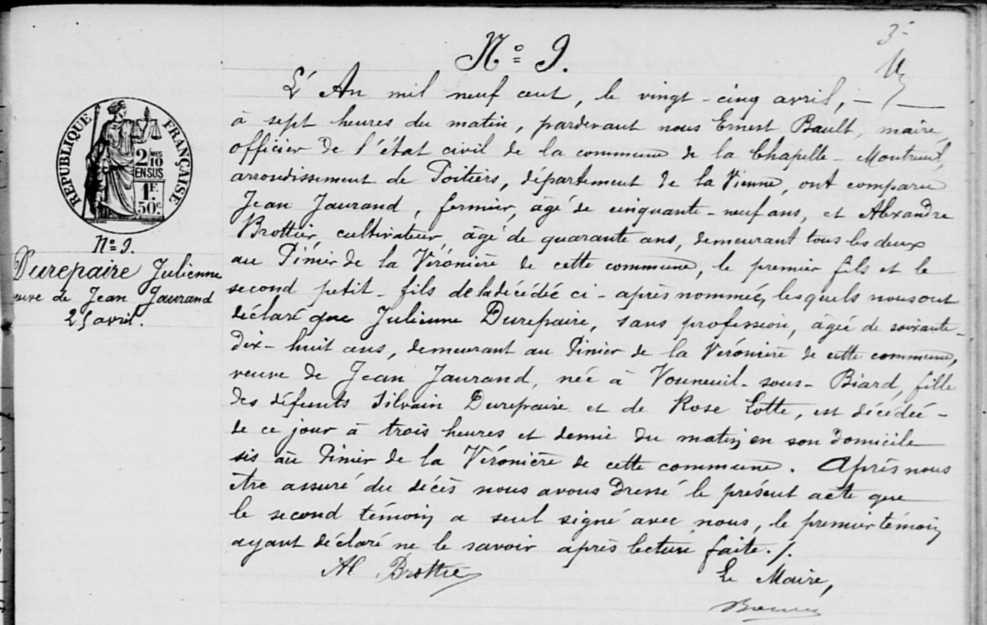 3
N° 9.
L'An mil neuf cent, le vingt-cinq avril, -
à sept heures du matin, pardevant nous Ernest Bault, maire
officier de l'état civil de la commune de la Chapelle-Montreuil,
arrondissement de Poitiers, département de la Vienne, ont comparu
Jean Jaurand, fermier, âgé de cinquante-neuf ans, et Alexandre
Brottier, cultivateur, âgé de quarante ans, demeurant tous les deux
au Pinier de la Véronière de cette commune, le premier fils et le
second petit-fils de la décédée ci-après nommée, lesquels nous ont
déclaré que Julienne Durepaire, sans profession, âgée de soixante-
dix-huit ans, demeurant au Pinier de la Véronière de cette commune,
veuve de Jean Jaurand, née à Vouneuil-sous-Biard, fille
des défunts Silvain Durepaire et de Rose Lotte, est décédée -
de ce jour à trois heures et demie du matin en son domicile
sis au Pinier de la Véronière de cette commune. Après nous
être assuré du décès nous avons dressé le présent acte que
le second témoin a seul signé avec nous, le premier témoin
ayant déclaré ne le savoir après lecture faite./.
Al Brottier
Le Maire,
RÉPUBLIQUE FRANÇAISE
2/10
EN SUS
1F.
50c
N° 9.
Durepaire Julienne
veuve de Jean Jaurand
25 avril.